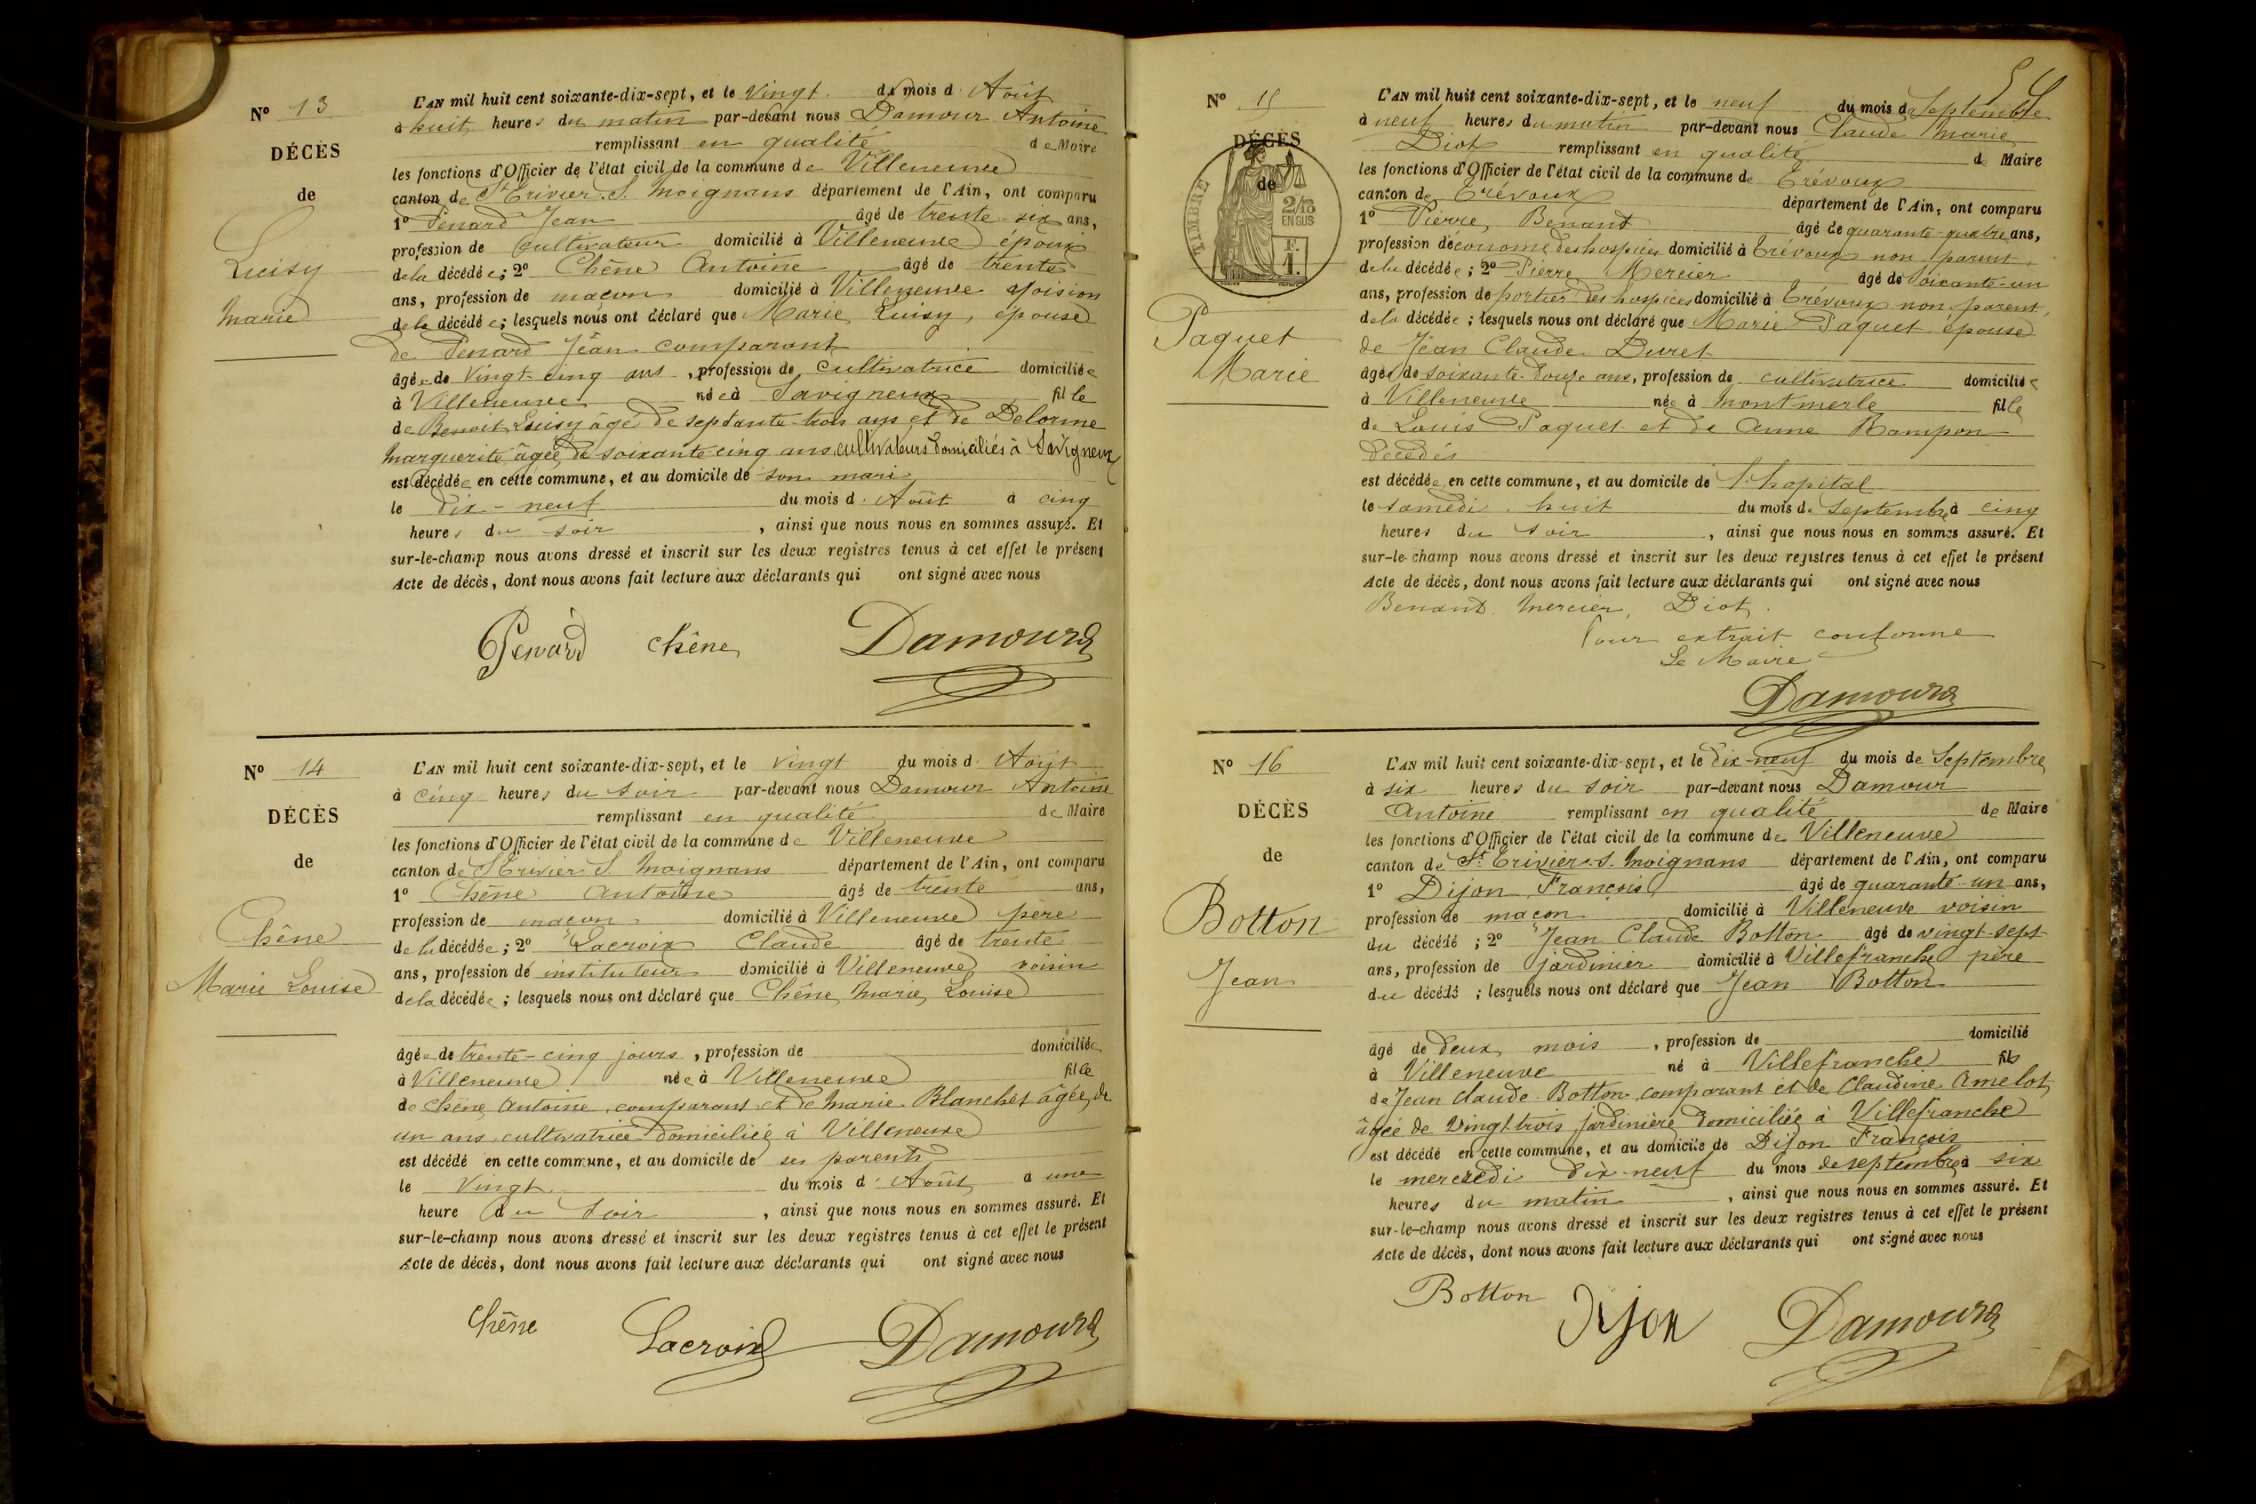 Nº 13
DÉCÈS
de
Luisy
Marie
L'AN mil huit cent soixante-dix-sept, et le vingt du mois d'Août
à huit heures du matin par-devant nous Damour Antoine
remplissant en qualité de Maire
les fonctions d'Officier de l'état civil de la commune de Villeneuve
canton de St Trivier S. Moignans département de l'Ain, ont comparu
1º Penard Jean âgé de trente six ans,
profession de cultivateur domicilié à Villeneuve époux
de la décédée; 2º Chêne Antoine âgé de trente
ans, profession de maçon domicilié à Villeneuve voision
de la décédée; lesquels nous ont déclaré que Marie Luisy, épouse
de Penard Jean comparant
âgée de vingt-cinq ans, profession de cultivatrice domiciliée
à Villeneuve née à Savigneux fille
de Benoit Luisy âgé de septante-trois ans et de Delorme
Marguerite âgée de soixante cinq ans, cultivateurs domiciliés à Savigneux
est décédée en cette commune, et au domicile de son mari
le dix-neuf du mois d'Août à cinq
heures du soir, ainsi que nous nous en sommes assuré. Et
sur-le-champ nous avons dressé et inscrit sur les deux registres tenus à cet effet le présent
Acte de décès, dont nous avons fait lecture aux déclarants qui ont signé avec nous
Penard Chêne Damour
Nº 14
DÉCÈS
de
Chêne
Marie Louise
L'AN mil huit cent soixante-dix-sept, et le vingt du mois d'Août
à cinq heures du soir par-devant nous Damour Antoine
remplissant en qualité de Maire
les fonctions d'Officier de l'état civil de la commune de Villeneuve
canton de St Trivier S. Moignans département de l'Ain, ont comparu
1º Chêne Antoine âgé de trente ans,
profession de maçon domicilié à Villeneuve père
de la décédée; 2º Lacroix Claude âgé de trente
ans, profession de instituteur domicilié à Villeneuve voisin
de la décédée; lesquels nous ont déclaré que Chêne Marie Louise
âgée de trente-cinq jours, profession de domiciliée
à Villeneuve née à Villeneuve fille
de Chêne Antoine, comparant et de Marie Blanchet âgée de
un ans cultivatrice domiciliée à Villeneuve
est décédé en cette commune, et au domicile de ses parents
le vingt du mois d'Août à une
heure du soir, ainsi que nous nous en sommes assuré. Et
sur-le-champ nous avons dressé et inscrit sur les deux registres tenus à cet effet le présent
Acte de décès, dont nous avons fait lecture aux déclarants qui ont signé avec nous
Chêne Lacroix Damour
Nº 15
DÉCÈS
de
TIMBRE
2/10
EN SUS
F.
1.
Paquet
Marie
L'AN mil huit cent soixante-dix-sept, et le neuf du mois de Septembre
à neuf heures du matin par-devant nous Claude Marie
Diot remplissant en qualité de Maire
les fonctions d'Officier de l'état civil de la commune de Trévoux
canton de Trévoux département de l'Ain, ont comparu
1º Pierre Benant âgé de quarante-quatre ans,
profession d'économe des hospices domicilié à Trévoux non parent
de la décédée; 2º Pierre Mercier âgé de soixante-un
ans, profession de portier des hospices domicilié à Trévoux non parent
de la décédée; lesquels nous ont déclaré que Marie Paquet épouse
de Jean Claude Duret
âgée de soixante-douze ans, profession de cultivatrice domiciliée
à Villeneuve née à Montmerle fille
de Louis Paquet et de Anne Rampon
décédés
est décédée en cette commune, et au domicile de l'hopital
le samedi huit du mois de Septembre à cinq
heures du soir, ainsi que nous nous en sommes assuré. Et
sur-le-champ nous avons dressé et inscrit sur les deux registres tenus à cet effet le présent
Acte de décès, dont nous avons fait lecture aux déclarants qui ont signé avec nous
Benant Mercier, Diot.
Pour extrait conforme
Le Maire
Damour
Nº 16
DÉCÈS
de
Botton
Jean
L'AN mil huit cent soixante-dix-sept, et le dix-neuf du mois de Septembre
à six heures du soir par-devant nous Damour
Antoine remplissant en qualité de Maire
les fonctions d'Officier de l'état civil de la commune de Villeneuve
canton de St Trivier S. Moignans département de l'Ain, ont comparu
1º Dijon François âgé de quarante-un ans,
profession de maçon domicilié à Villeneuve voisin
du décédé; 2º Jean Claude Botton âgé de vingt-sept
ans, profession de jardinier domicilié à Villefranche père
du décédé; lesquels nous ont déclaré que Jean Botton
âgé de deux mois, profession de domicilié
à Villeneuve né à Villefranche fils
de Jean Claude Botton comparant et de Claudine Amelot
âgée de vingt trois jardinière domiciliée à Villefranche
est décédé en cette commune, et au domicile de Dijon François
le mercredi dix-neuf du mois de septembre à six
heures du matin, ainsi que nous nous en sommes assuré. Et
sur-le-champ nous avons dressé et inscrit sur les deux registres tenus à cet effet le présent
Acte de décès, dont nous avons fait lecture aux déclarants qui ont signé avec nous
Botton Dijon Damour